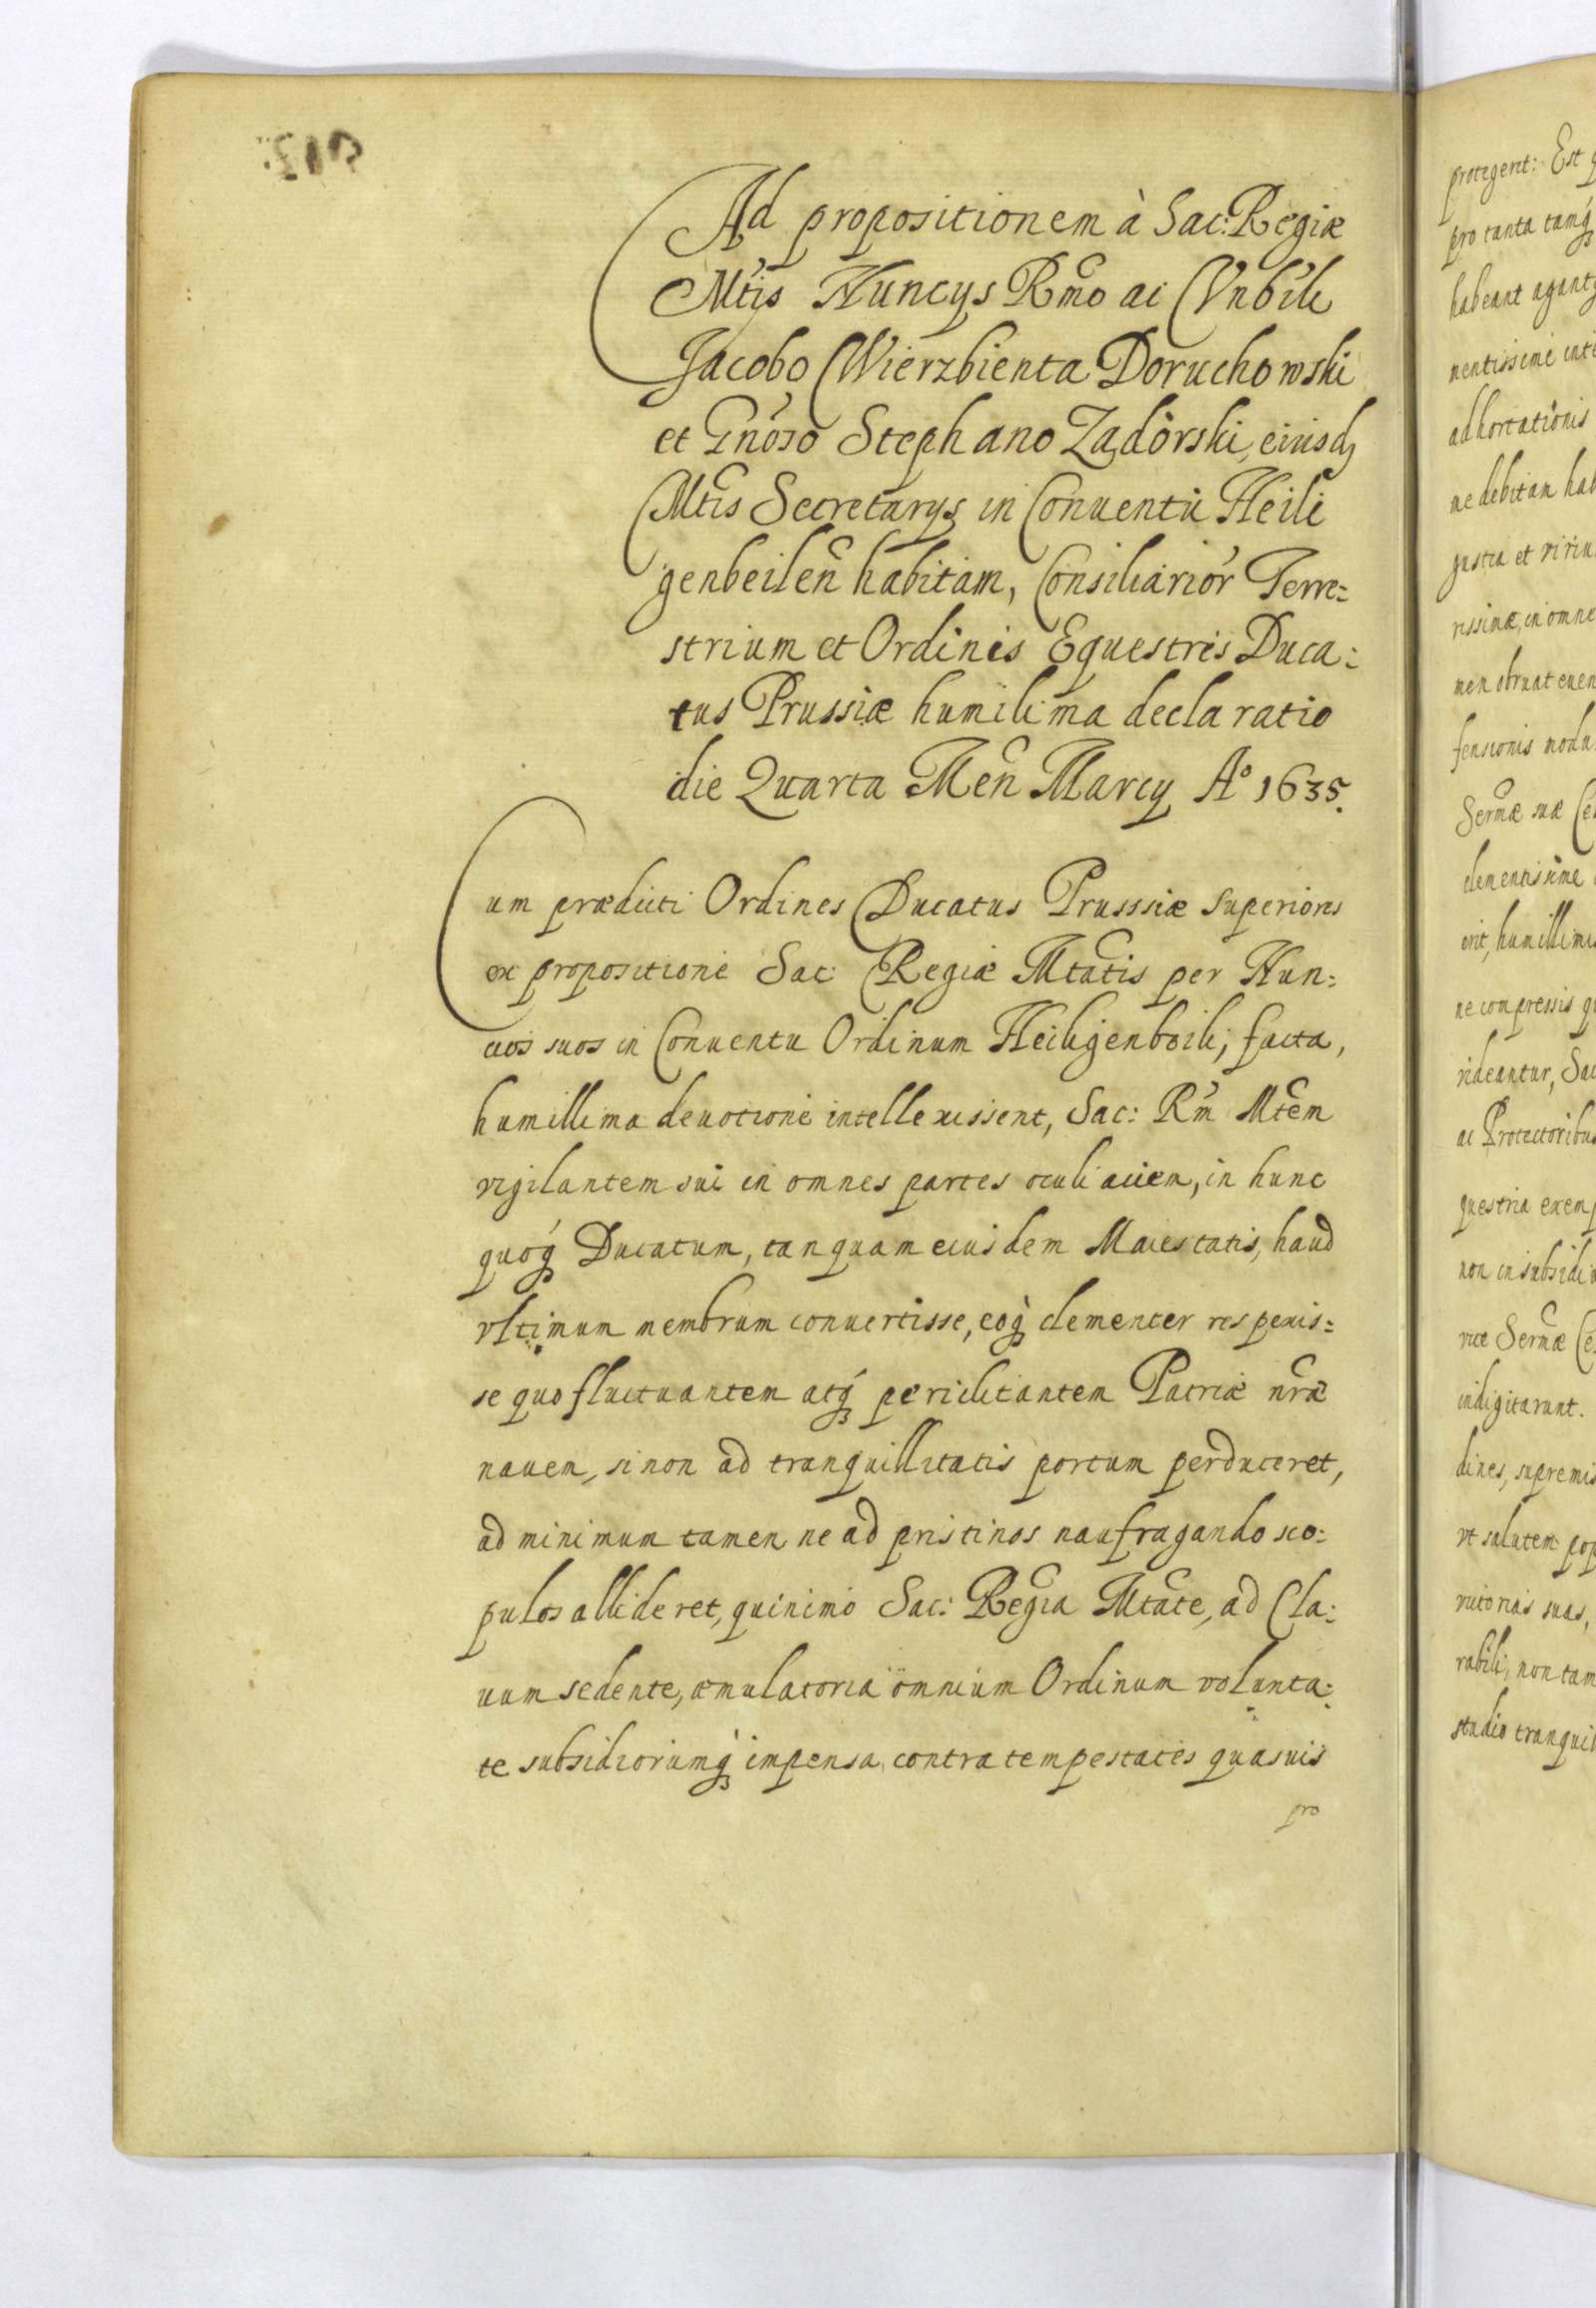 Ad propositionem à Sac: Regiæ
Mtis Nuncÿs Rmo ac Vnbili
Jacobo Wierzbienta Doruchowski
et Gnoso Stephano Zadorski, eiusdꝫ
Mtis Secretarÿs in Conuentu Heili
genbeilen habitam, Consiliarior Terre:
strium et Ordinis Equestris Duca:
tus Prussiæ humilima declaratio
die Quarta Men Marcÿ Aº 1635.
Cum prædicti Ordines Ducatus Prussiæ superiores
ex propositione Sac: Regiæ Mtatis per Nun:
cios suos in Conuentu Ordinum Heiligenbeili, facta,
humillima deuotione intellexissent, Sac: Rm Mtem
vigilantem sui in omnes partes oculi aciem, in hunc
quoqꝫ Ducatum, tanquam eiusdem Maiestatis, haud
vltimum membrum conuertisse, eoqꝫ clementer respexis:
se quo fluctuantem atqꝫ periclitantem Patriæ nræ
nauem, si non ad tranquillitatis portum perduceret,
ad minimum tamen ne ad pristinos naufragando sco:
pulos allideret, quinimo Sac: Regia Mtate, ad Cla:
uum sedente, æmulatoria omnium Ordinum volunta:
te subsidiorumqꝫ impensa, contra tempestates quasuis
pro
protegeret: Est
pro tanta tamqꝫ
habeant agant
mentissime inte
adhortationis
ne debitam hab
gustia et viriu
rissimæ, in omne
men obruat euen
fensionis modu
Sermæ suæ Ce
clementissime
erit, humillime
ne compressis
videantur, Sac
ac Protectoribus
questria exemp
non in subsidi
vice Sermæ Ce
indigitarunt.
dines, supremis
vt salutem pop
victorias suas,
rabili, non tam
studio tranquil